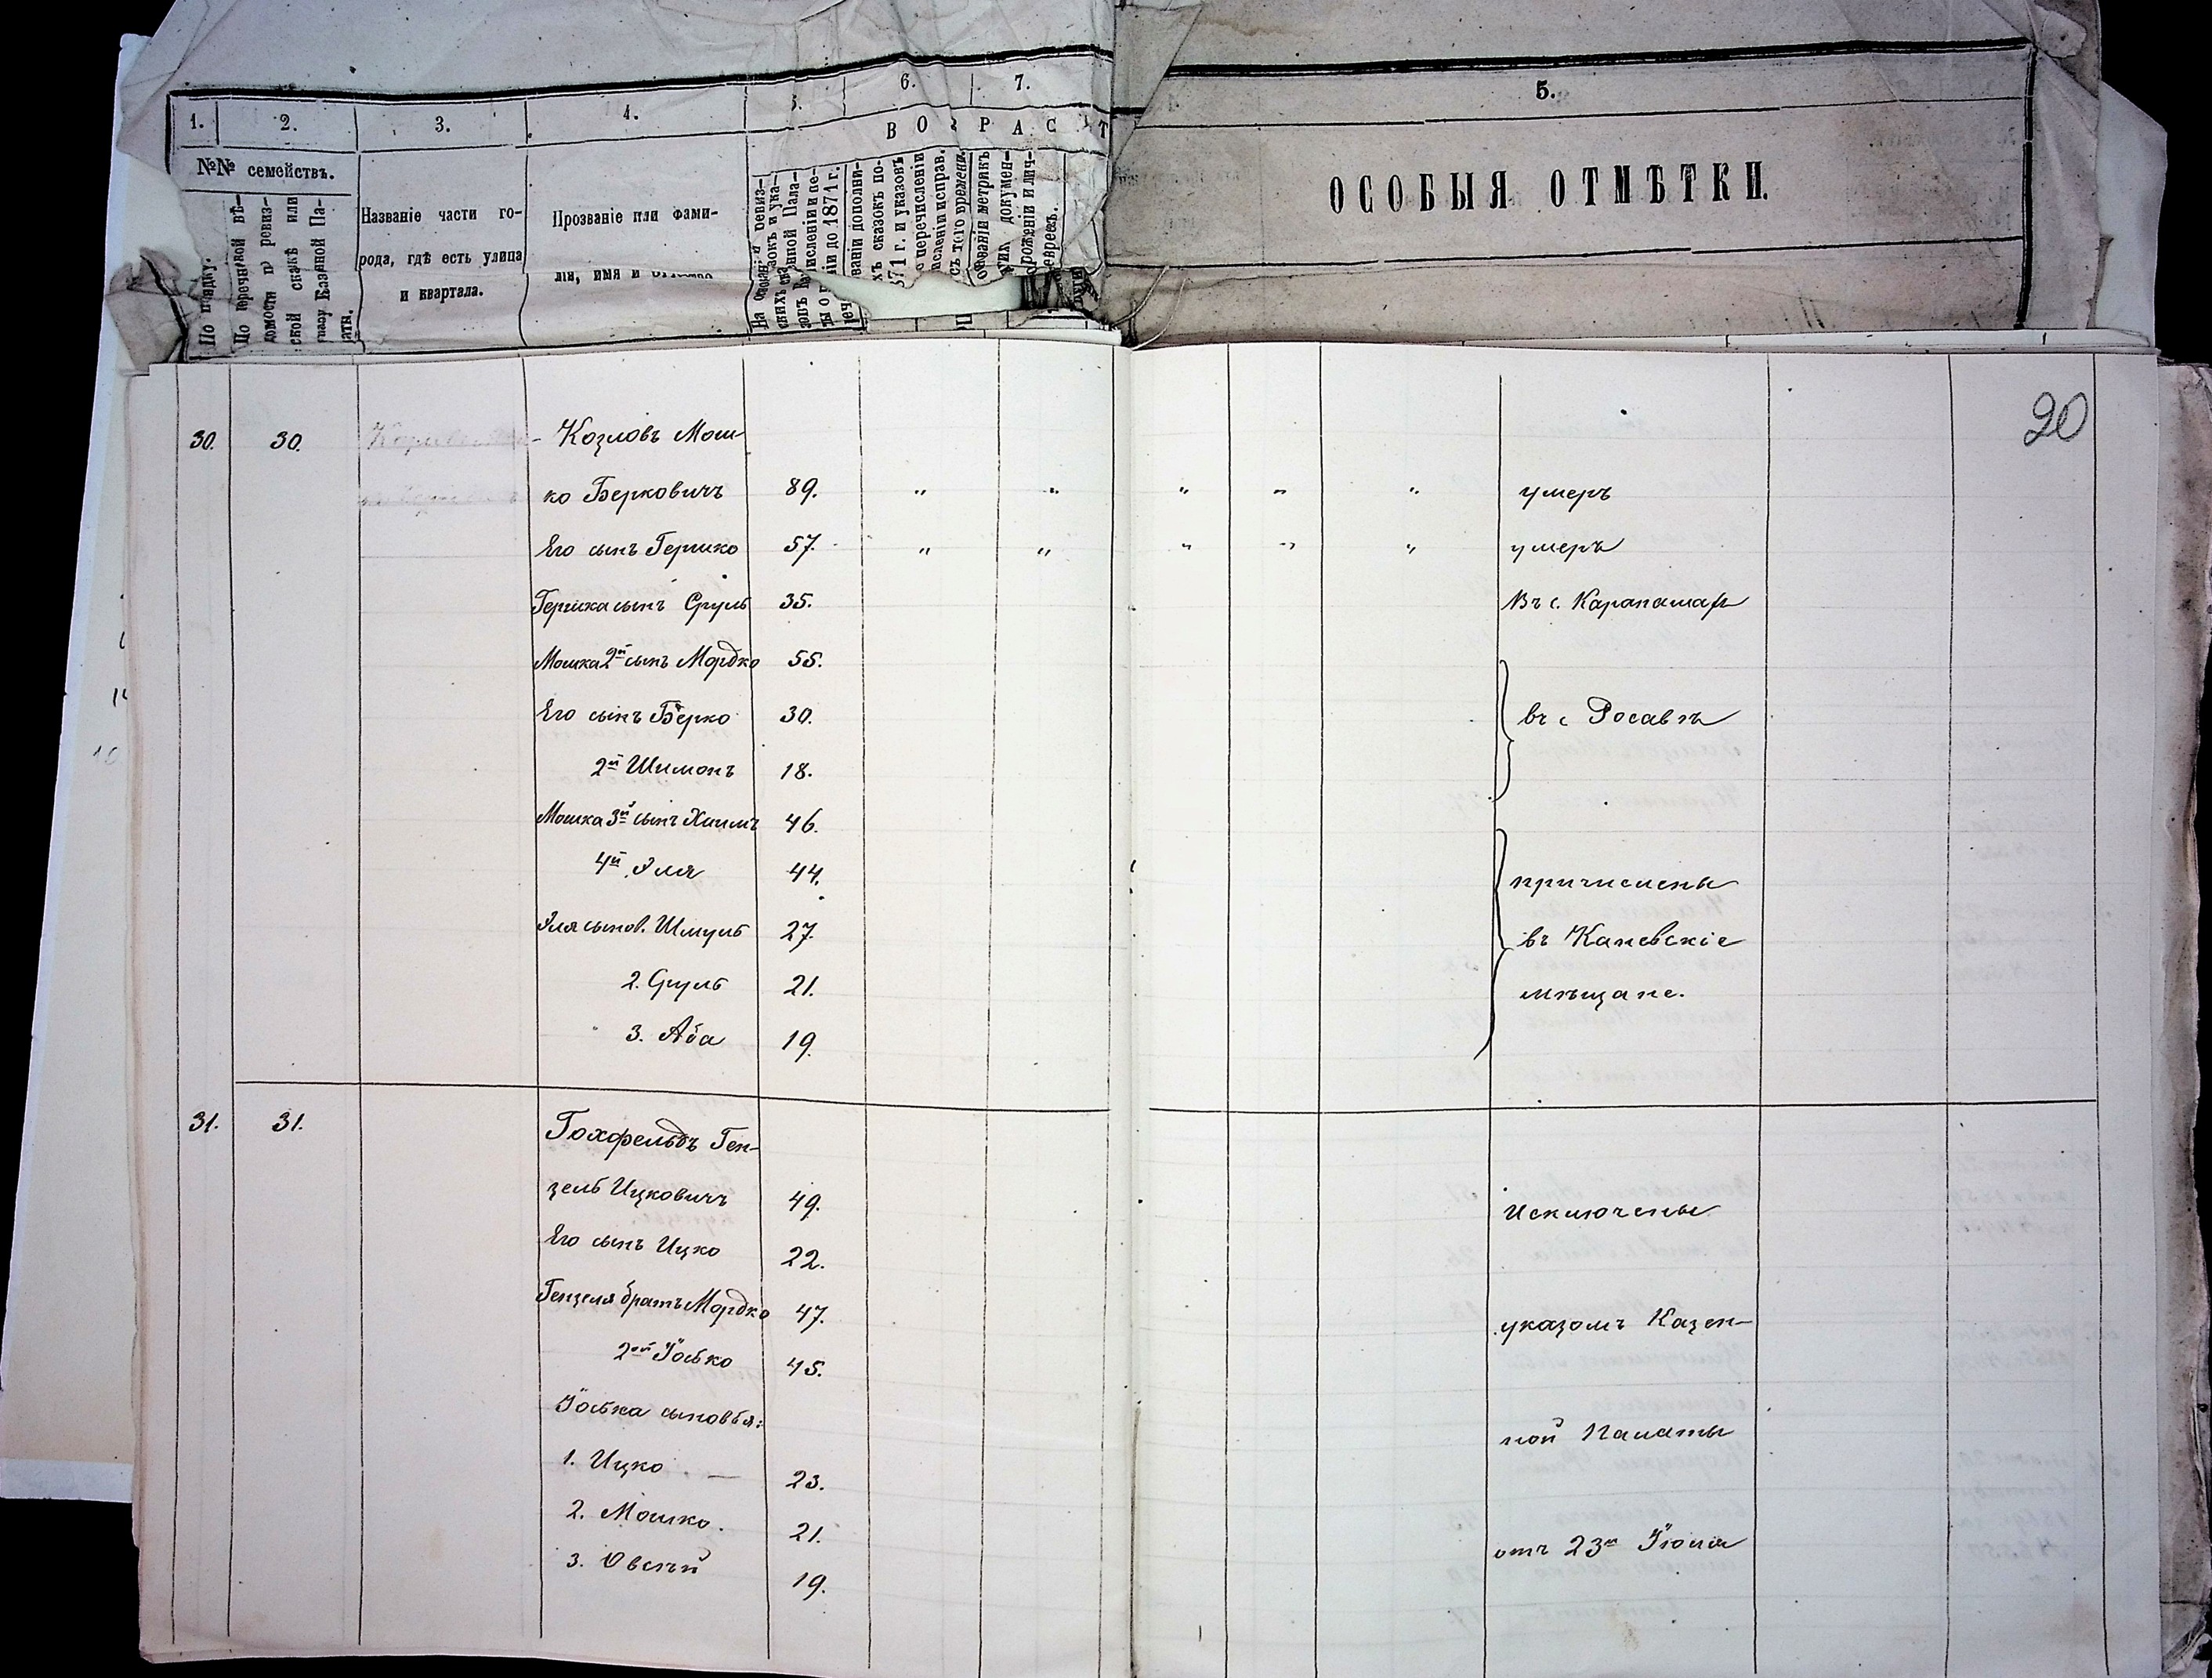 1.
2.
3.
4.
5.
6.
7.
5.
ВОЗРАСТ
№№ семействъ.
По порядку.
Названіе части го-
рода, гдѣ есть улица
и квартала.
Прозваніе или фами-
лія, имя и отчество
ОСОБЫЯ ОТМѢТКИ.
20
30. 30. Козловъ Мош-
ко Берковичъ 89. " " " " " умеръ
Его сынъ Гершко 57. " " " " " умеръ
Гершка сынъ Сруль 35. Въ с. Карапышахъ
Мошка 2й сынъ Мордко 55.
Его сынъ Берко 30. въ с Росавѣ
2й Шимонъ 18.
Мошка 3й сынъ Хаимъ 46.
4й Эля 44. причислены
Эля сынов. Шмуль 27. въ Каневскіе
2. Сруль 21. мѣщане.
3. Аба 19.
31. 31. Гохфельдъ Ген-
зель Ицковичъ 49. Исключены
Его сынъ Ицко 22.
Гензеля братъ Мордко 47. указомъ Казен-
2ой Іосько 45.
Іоська сыновья: ной Палаты
1. Ицко — 23.
2. Мошко. 21. отъ 23го
3. Овсѣй 19.